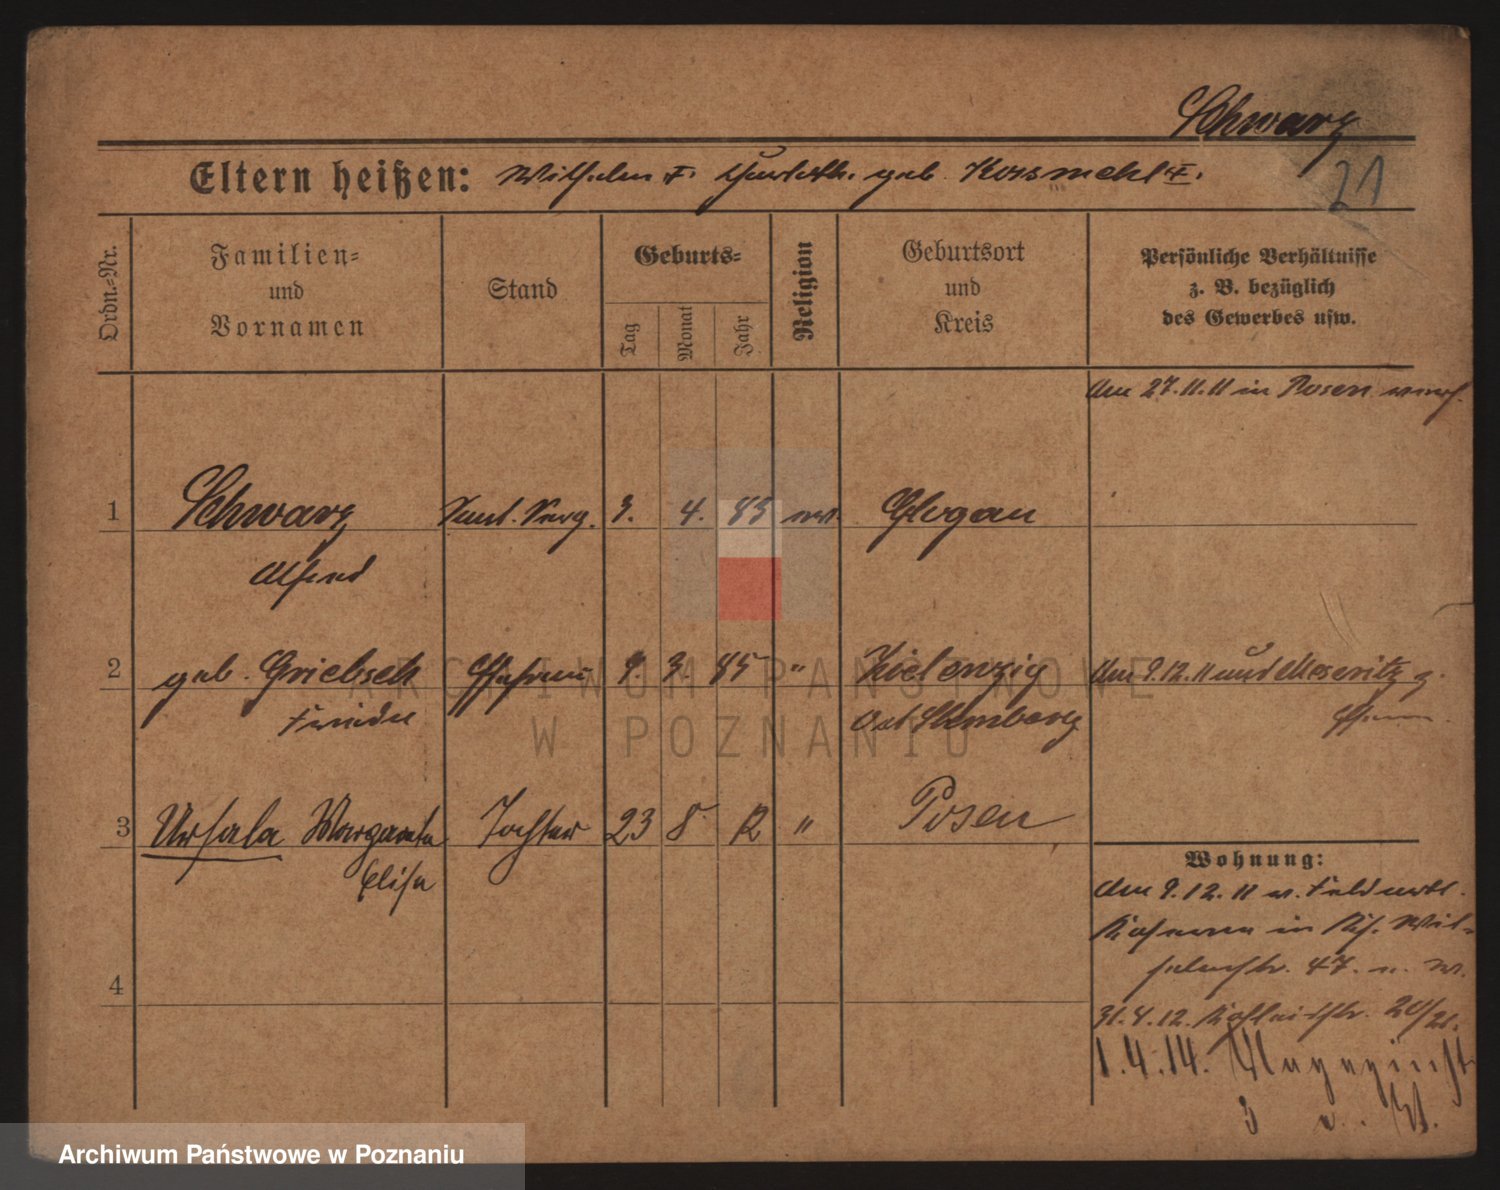 Schwarz
21
Eltern heißen: Wilhelm †. geb. Kossmehl †.
Ordn.-Nr.
Familien-
und
Vornamen
Stand
Geburts-
Tag
Monat
Jahr
Religion
Geburtsort
und
Kreis
Persönliche Verhältnisse
z. B. bezüglich
des Gewerbes usw.
Am 27.11.11 in Posen
1 Schwarz 3. 4. 83 Glogau
Alfred
2 geb. Griebsch Ehefrau 9. 3. 85 " Zielenzig Am 9.12.11 Meseritz
Frieda Ost Sternberg
3 Ursula Margareta Tochter 23 8 12 " Posen
Elisa
Wohnung:
Am 9.12.11
Kaserne in Wil-
helmstr. 47.
4
31.4.12. 20/21.
1.4.14. Magazinstr
3
ARCHIWUM PAŃSTWOWE
W POZNANIU
Archiwum Państwowe w Poznaniu